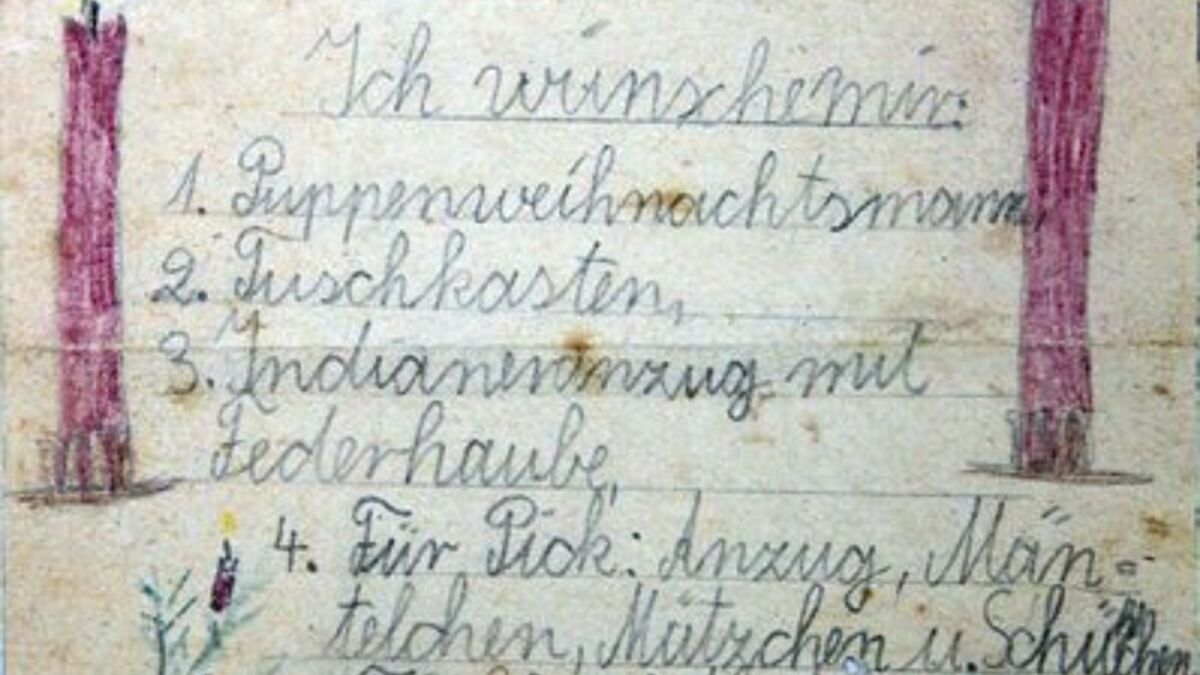 Ich wünsche mir:
1. Puppenweihnachtsmann,
2. Tuschkasten,
3. Indianeranzug mit
Federhaube,
4. Für Pick: Anzug, Män=
telchen, Mützchen u.